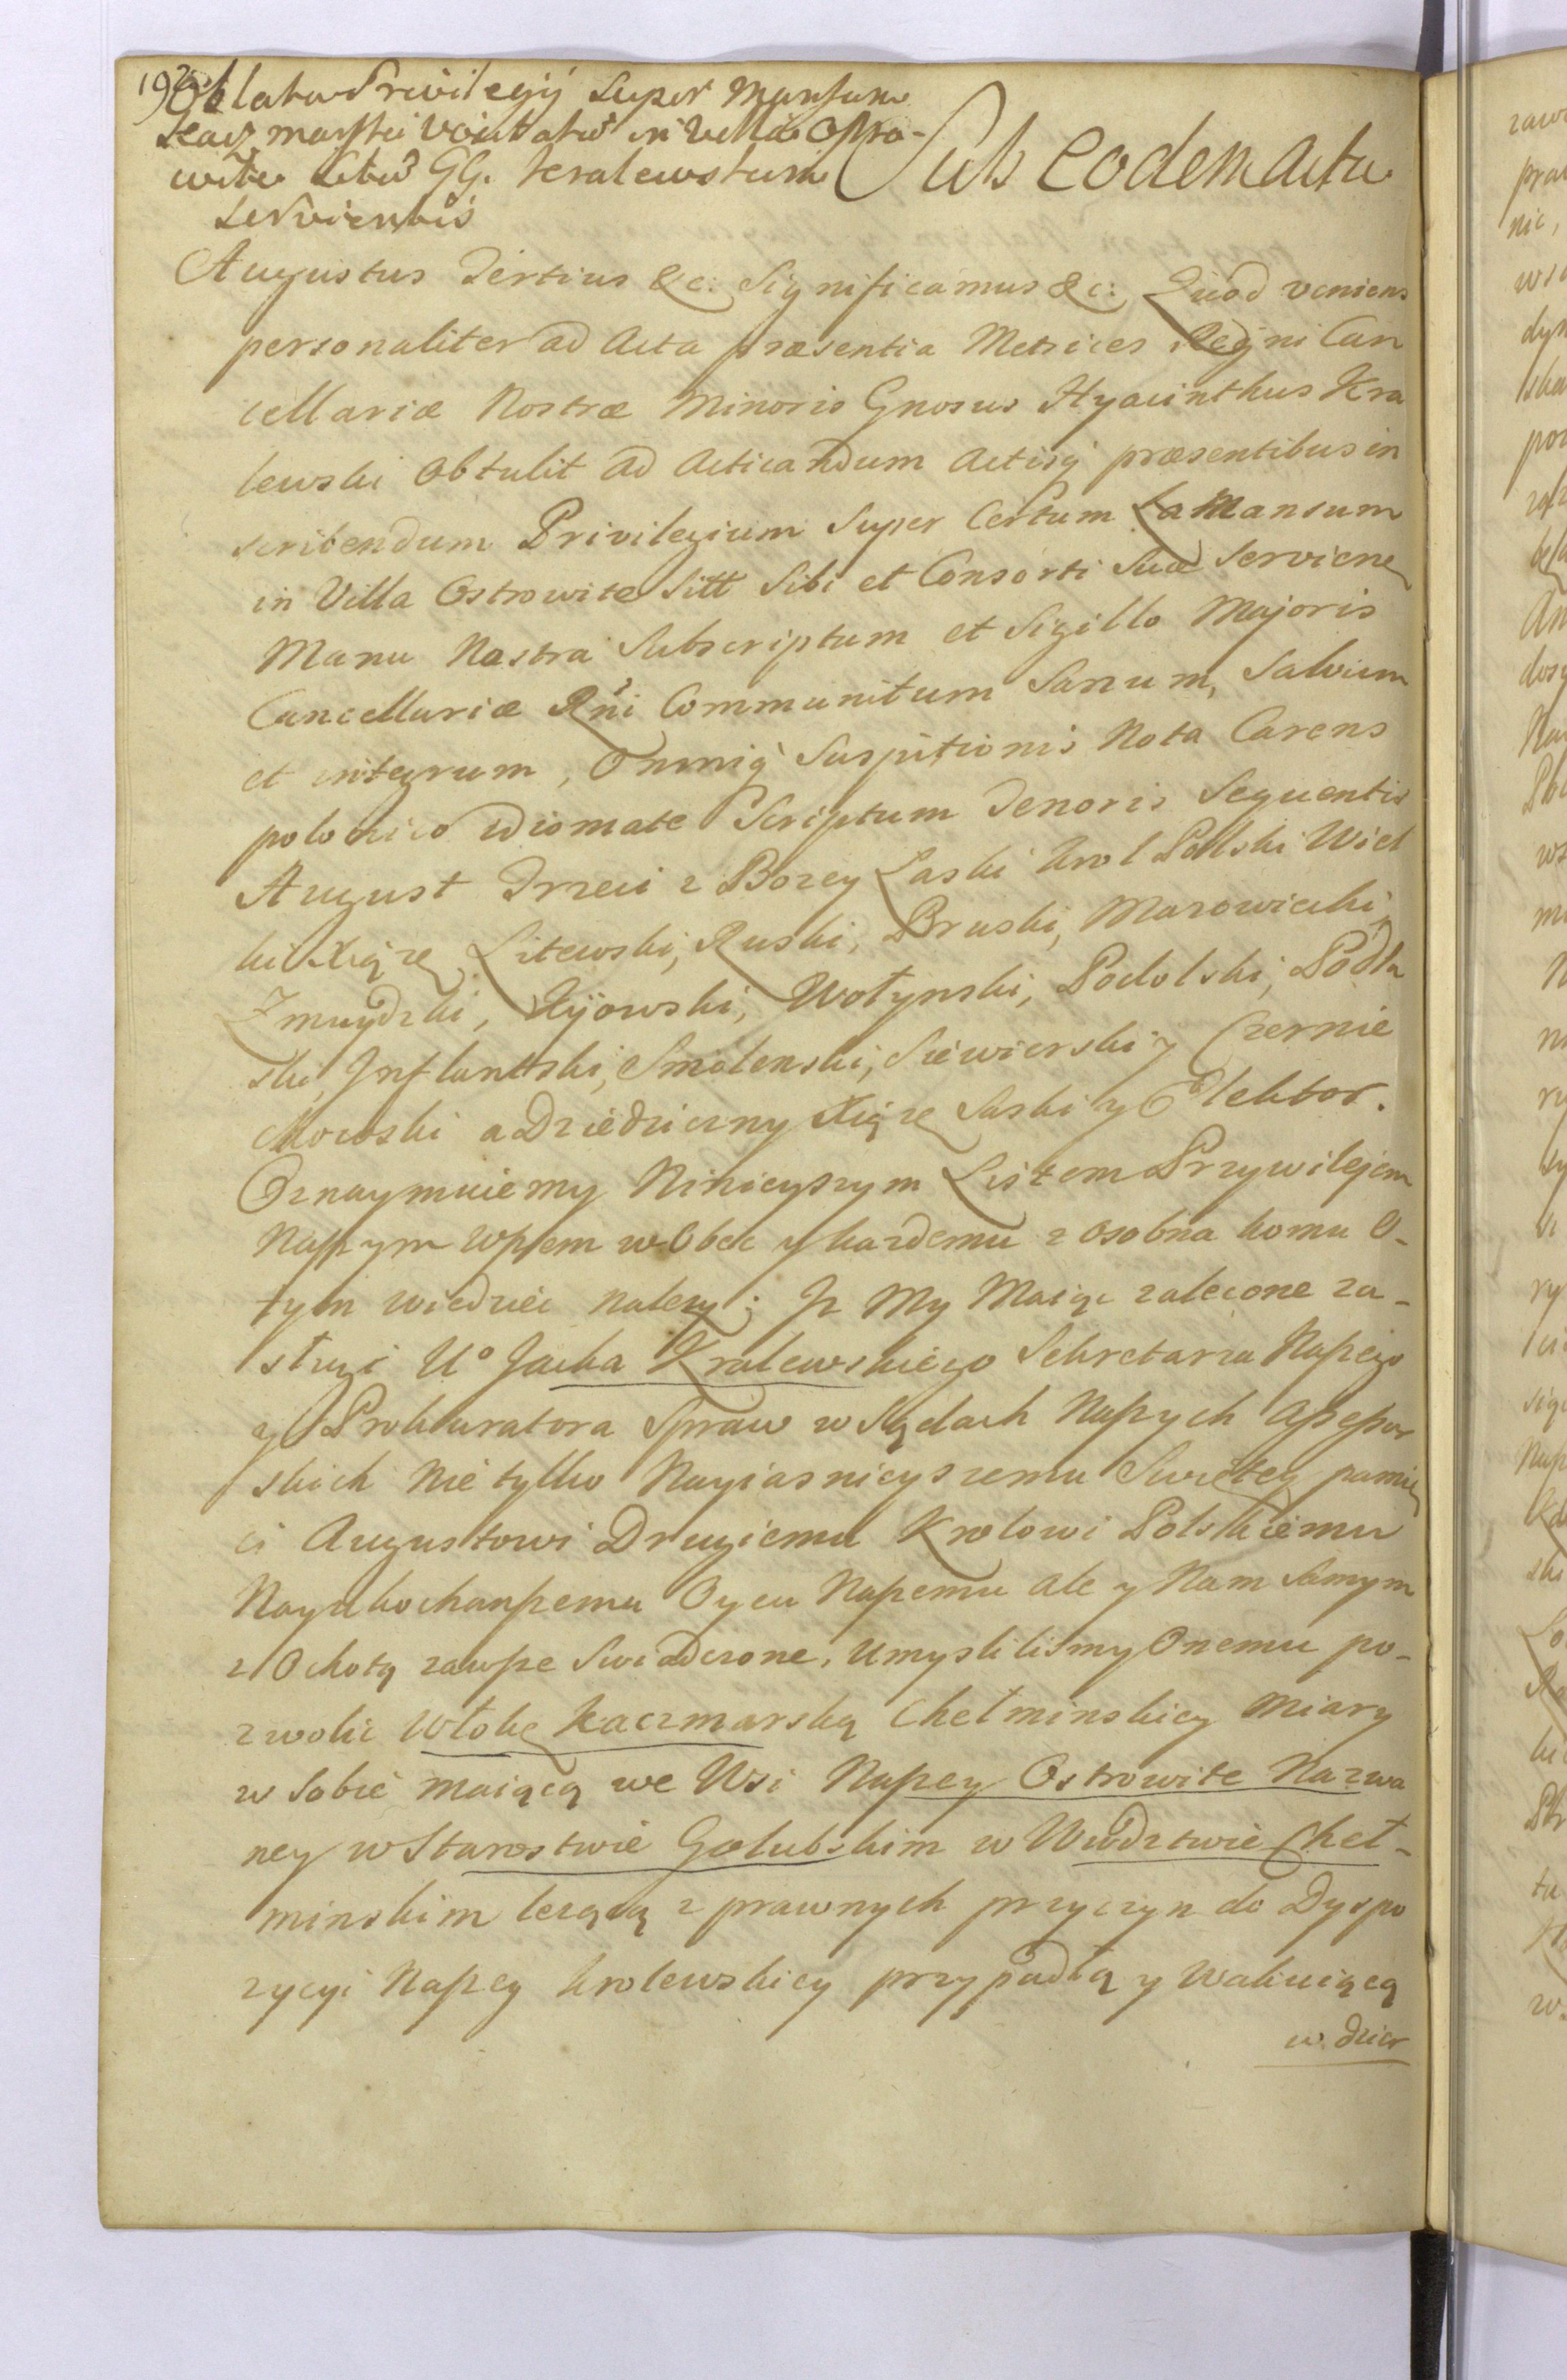 192
Oblata Privilegij Super Mansum
Kaczmarski vocitatu in Villa Ostro-
wite Situ GG. Kralewskim
Servientis
Sub eodem actu
Augustus Tertius &c: Significamus &c: Quod veniens
personaliter ad Acta præsentia Metrices Regni Can
cellariæ Nostræ Minoris Gnosus Hyacinthus Kra
lewski obtulit ad Acticandum Actisq præsentibus in
scribendum Privilegium Super Certum Mansum
in Villa Ostrowite Sitt Sibi et Consorti Suæ Serviens
Manu Nostra Subscriptum et Sigillo Majoris
Cancellariæ Rñi Communitum Sanum, Salvum
et integrum, Omniq Suspitionis Nota Carens
polonico Idiomate Scriptum Tenoris Sequentis
August Trzeci z Bozey Łaski Krol Polski Wiel
ki Xiąze Litewski, Ruski, Pruski, Mazowiecki,
Zmuydzki, Kijowski, Wołynski, Podolski, Podla
ski, Inflantski, Smolenski, Siewierski y Czernie
chowski a Dziedziczny Xiąze Saski y Elektor.
Oznaymuiemy Ninieyszym Listem Przywilejem
Naszym wszem w Obec y kazdemu z osobna komu o-
tym wiedziec nalezy; Iz My Maiąc zalecone za-
sługi U° Jacka Kralewskiego Sekretarza Naszego
y Prokuratora Spraw w Sądach Naszych Assessor
skich Nie tylko Nayiasnieyszemu Swiętey pamię
ci Augustowi Drugiemu Krolowi Polskiemu
Nayukochanszemu Oycu Naszemu ale y Nam Samym
z Ochotą zawsze Swiadczone, Umyslilismy Onemu po-
zwolic Włokę Kaczmarską Chełminskiey Miary
w Sobie maiącą we Wsi Naszey Ostrowite Nazwa
ney w Starostwie Golubskim w Wwdztwie Cheł-
minskim lezącą z prawnych przyczyn do Dyspo
zycyi Naszey krolewskiey przypadłą y Wakuiącą
w dzier